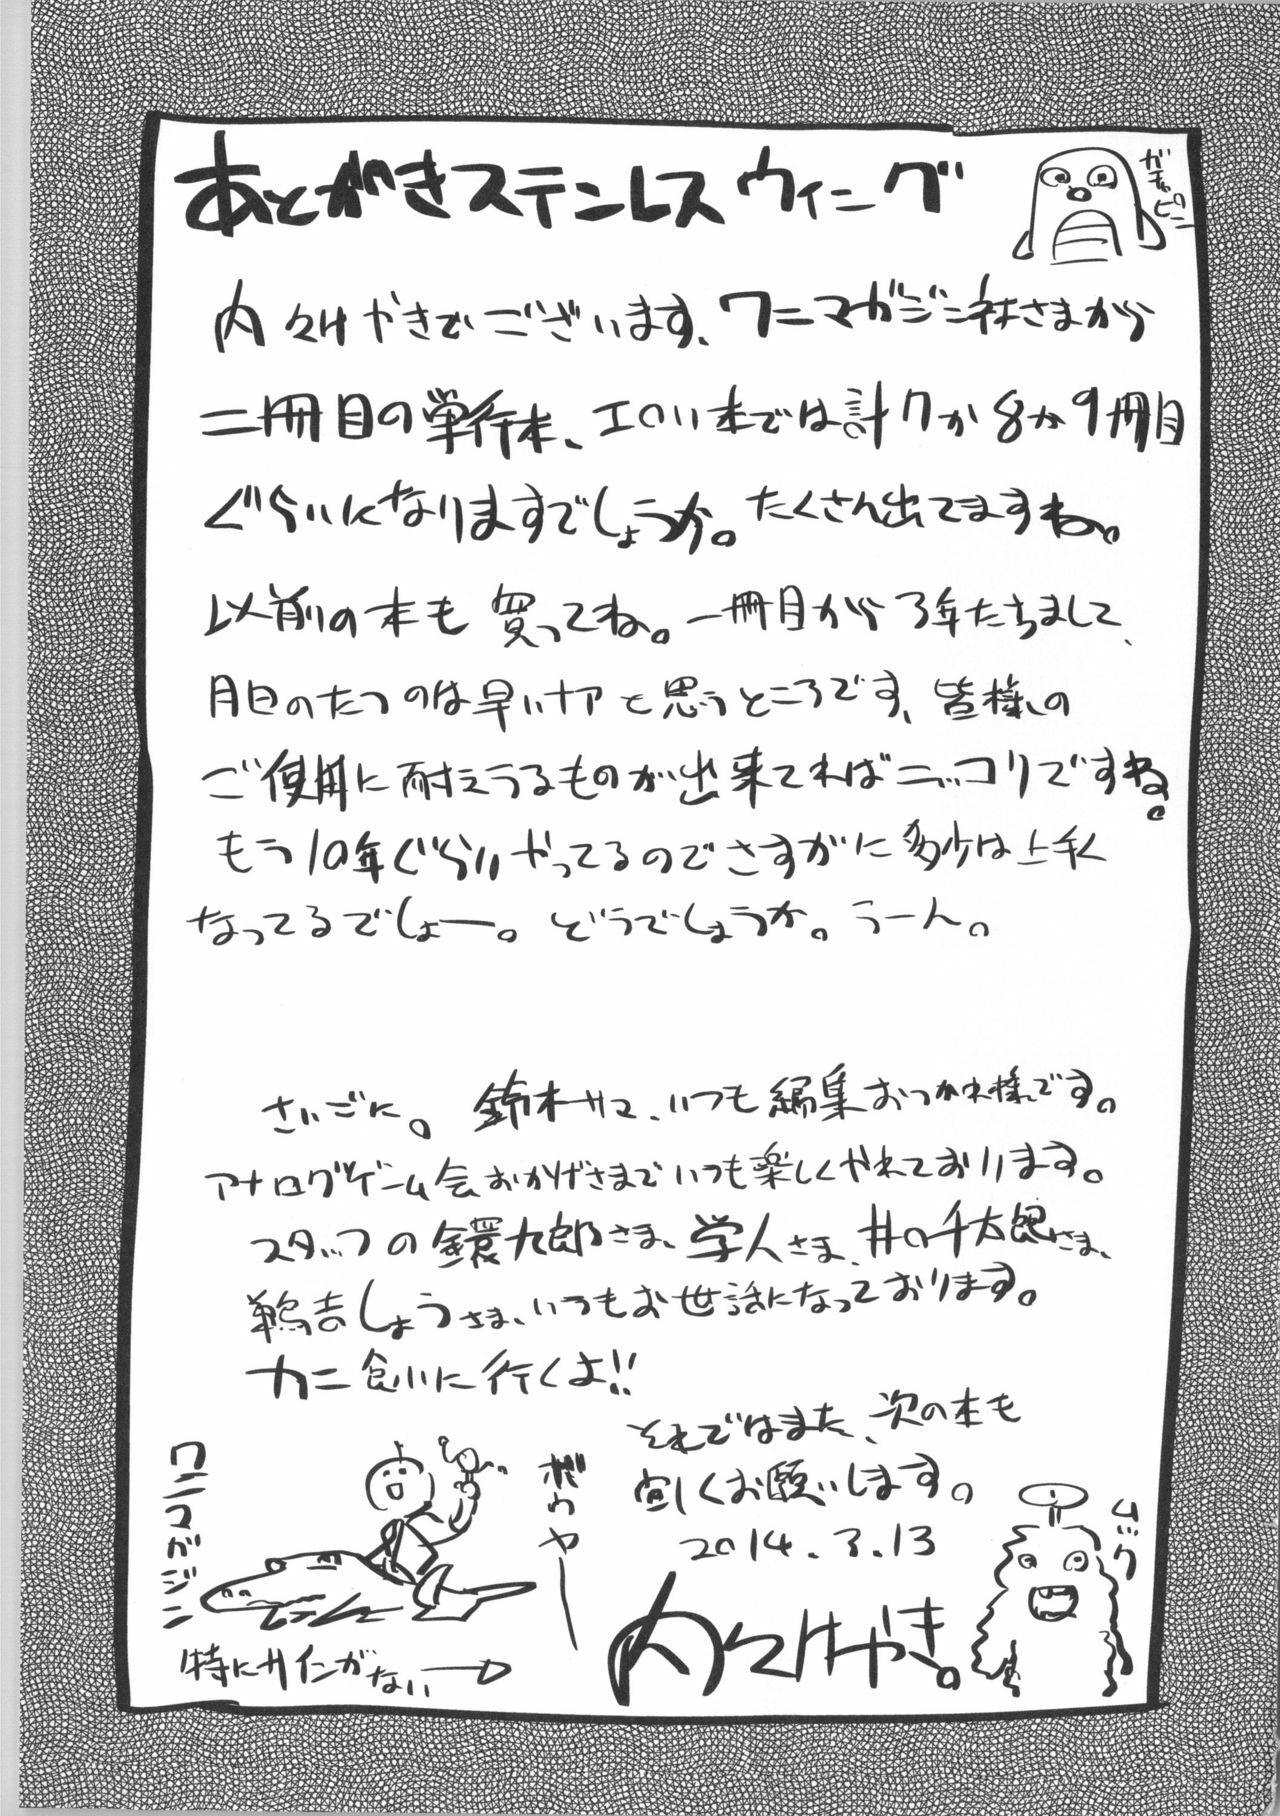 あとがきステンレスウィング
ガチャピン
内々けやきでございます、ワニマガジン社さまから
二冊目の単行本、エロい本では計7か8か9冊目
ぐらいになりますでしょうか。たくさん出てますね。
以前の本も買ってね。一冊目から3年たちまして、
月日のたつのは早いナァと思うところです、皆様の
ご使用に耐えうるものが出来てればニッコリですね。
もう10年ぐらいやってるのでさすがに多少は上手く
なってるでしょー。どうでしょうか。うーん。
さいごに。鈴木サマ、いつも編集おつかれ様です。
アナログゲーム会おかげさまでいつも楽しくやれております。
スタッフの鐶九郎さま、学人さま、井の千太郎さま、
鵺吉しょうさま、いつもお世話になっております。
カニ食いに行くよ!!
それではまた、次の本も
宜しくお願いします。
2014.3.13
内々けやき。
ワニマガジン
ボウヤー
特にサインがない
ムック